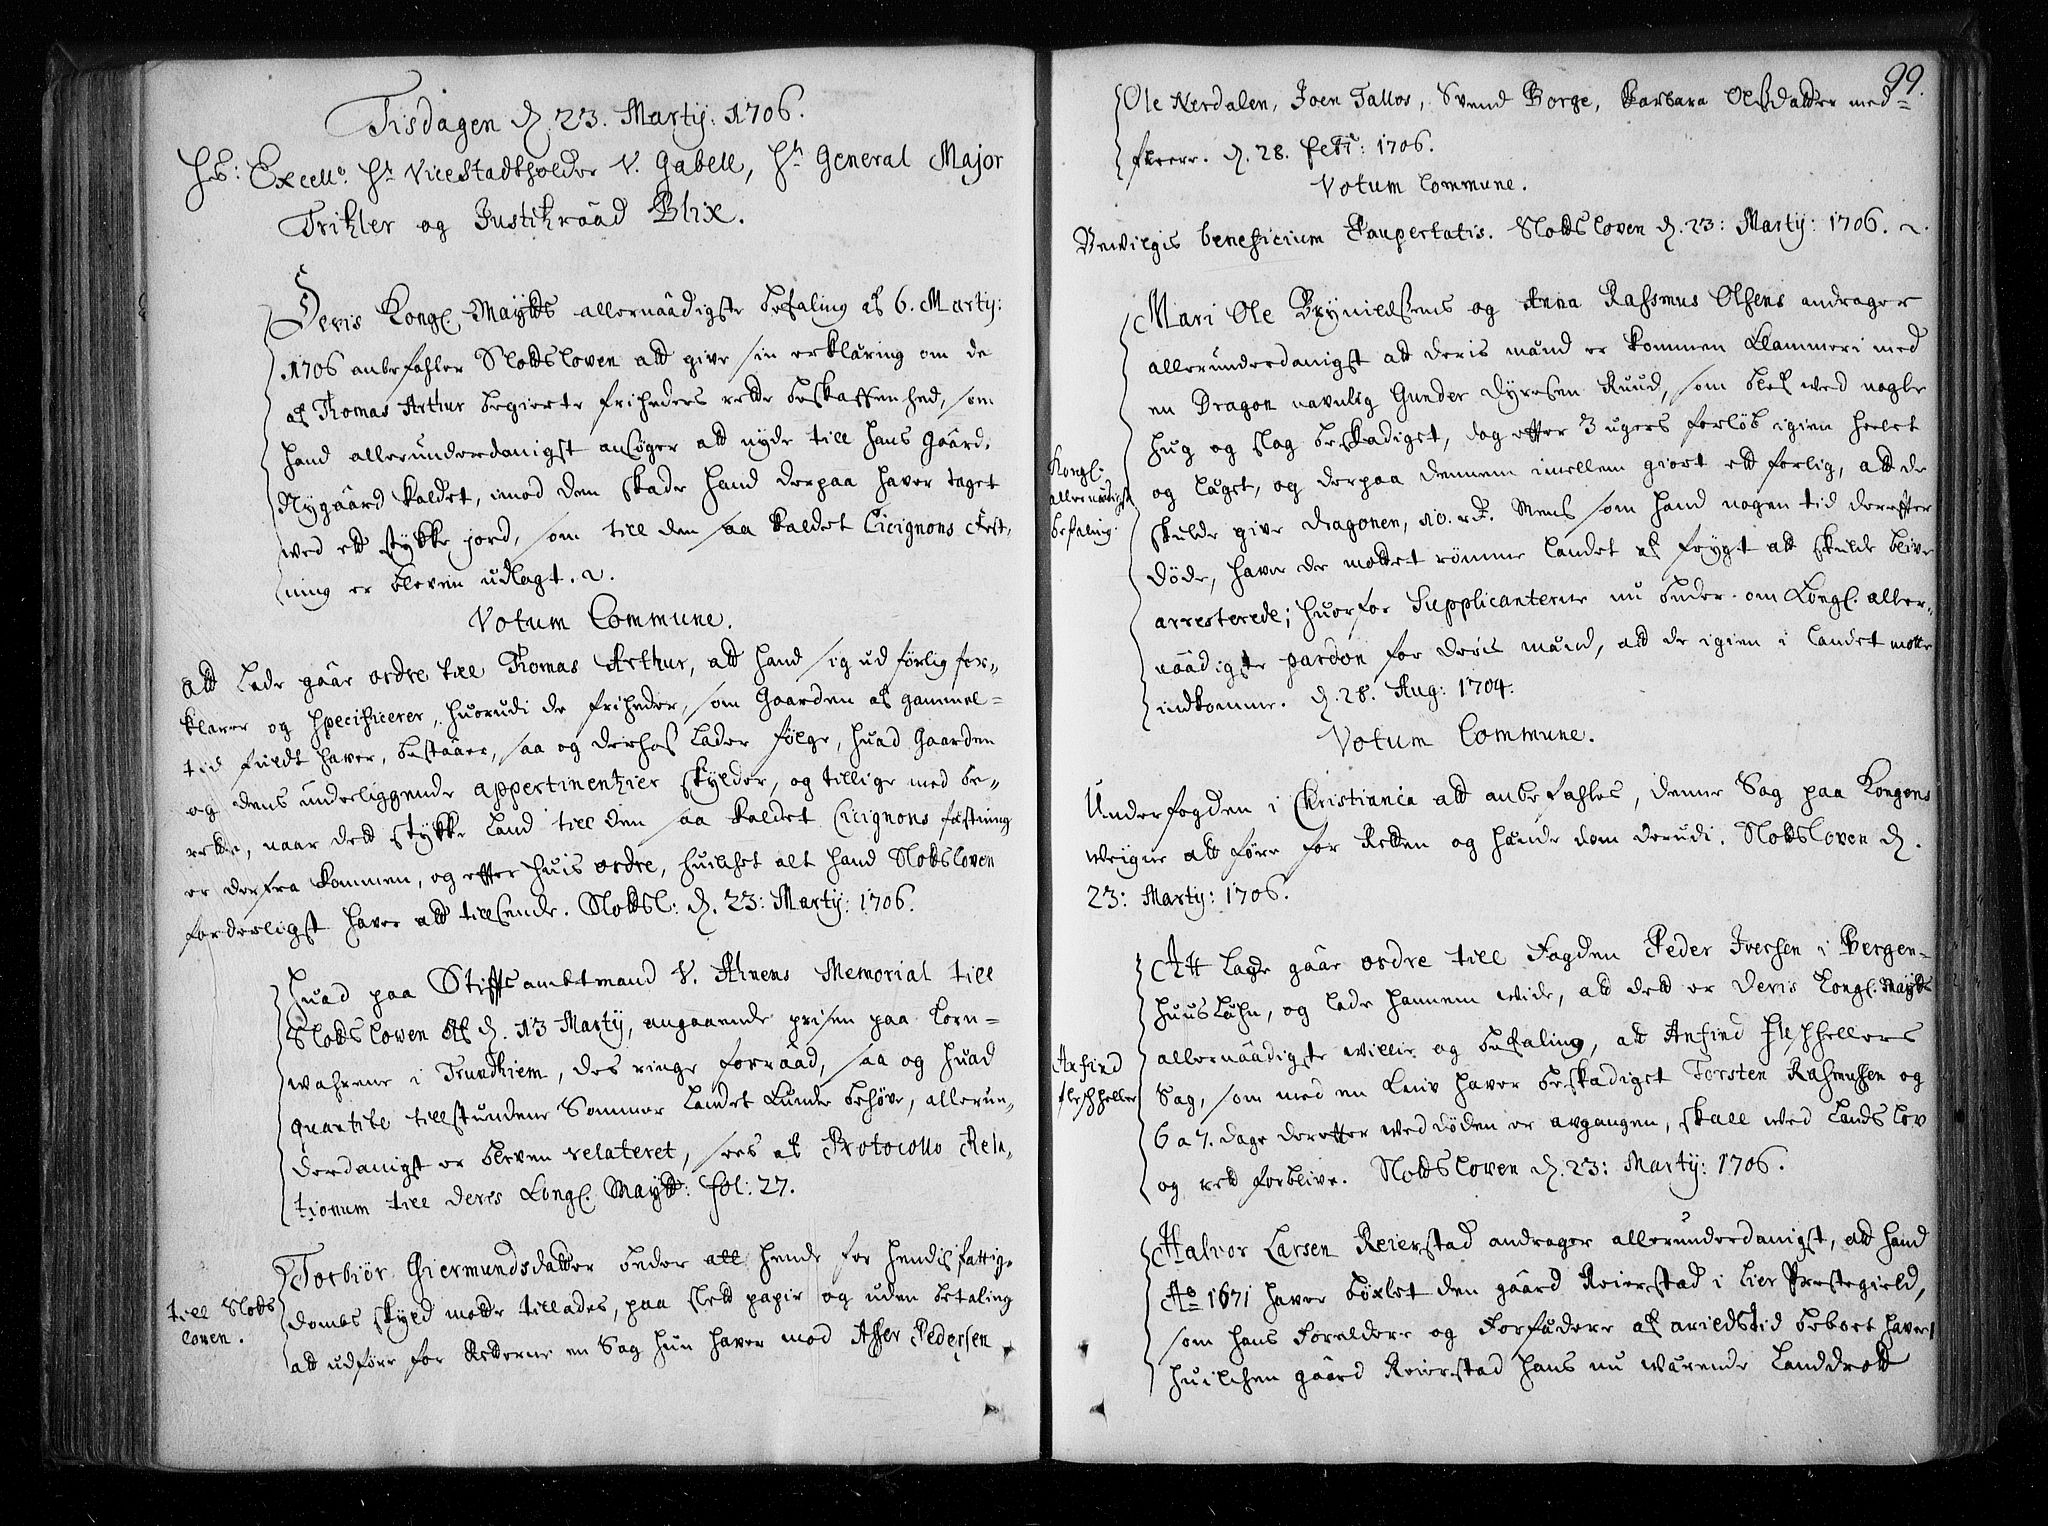 Tisdagen d. 23. Martij: 1706.
Hs: Excell. Hr Vicestadtholder V. Gabell, Hr General Major
Tritzler og Justitzrååd Blix.
Deris Kongl. Maytts allernåådigste befaling af 6. Martij:
1706 anbefahler Slottsloven att give sin erklæring om de
af Thomas Arthur begierte friheders rette beskaffenhed, som
hand allerunderdanigst ansøger att nyde till hans Gaard,
Nygaard kaldet, imod den skade hand derpaa haver taget
ved ett stykke jord, som till den saa kaldet Cicignons Fest,,
ning er bleven udlagt.
Votum Commune.
Att lade gaar ordre till Thomas Arthur, att hand sig udførlig for,,
klarer og specificerer, huorudi de friheder, som Gaarden af gammel=
tid fuldt haver, bestaaer, saa og derhos lader følge, huad Gaarden
og dens underliggende appertinentzier skylder, og tillige med be,,
rette, naar dett stykke land till den saa kaldet Cicignons festning
er derfra kommen, og efter huis ordre, huilchet alt hand Slottsloven
forderligst haver att tillsende. Slottsl: d. 23: Martij: 1706.
Huad paa Stiftsambtmand V. Ahnens Memorial till
Slottsloven af d. 13 Martij, angaaende prisen paa korn=
wahrene i Trundhiem, des ringe forraad, saa og huad
quantite tillstundene Sommer landet kunde behøve, allerun,,
derdanigst er bleven relateret, sees af Protocollo Rela,,
tionum till deris Kongl. Maytt: fol: 27.
till Slotts
loven.
Torbiør Giermundsdatter beder att hende for hendis fattig,,
dombs skyld motte tillades, paa slett papir og uden betaling
att udføre for Retterne en Sag hun haver mod Asser Pedersen
99.
Ole Nerdalen, Joen Tallos, Svend Borge, Barbara Olsdatter med=
fleere. d. 28. Febr: 1706.
Votum Commune.
Bewilgis beneficium Paupertatis. Slottsloven d. 23: Martij: 1706.
Kongl:
allernådigst
befaling.
Mari Ole Brynildsens og Anna Rassmus Olsens andrager
allerunderdanigst att deris mænd er kommen klammeri med
en Dragon navnlig Gunder Dyresen Ruud, som blef ved nogle
hug og slag beskadiget, dog efter 3 ugers forløb igien heelet
og læget, og derpaa dennem imellem giort ett forlig, att de
skulde give dragonen, 10. rd. Mens som hand nogen tid derefter
døde, haver de mottet rømme landet af frygt att skulde blive
arresterede; huorfor Supplicanterne nu beder om Kongl. aller,,
nåådigste pardon for deris mænd, att de igien i landet motte
indkomme. d. 28. Aug: 1704.
Votum Commune.
Underfogden i Christiania att anbefahles, denne Sag paa Kongens
weigne att føre for Retten og hænde dom derudi. Slottsloven d.
23: Martij: 1706.
Anfind
fleshheller
Att lade gaar ordre till Fogden Peder Iversen i Bergen=
huus læhn, og lade hannem wide, att dett er Deris Kongl. Maytts
allernåådigste willie og befaling, att Anfind Fleshhellers
Sag, som med en kniv haver beskadiget Torsten Rasmussen og
6 a 7. dage derefter ved døden er avgangen, skall ved Landslov
og rett forblive. Slottsloven d. 23: Martij: 1706.
Halvor Larsen Reierstad andrager allerunderdanigst, att hand
Ao 1671 haver bøxlet den gaard Reierstad i Lier Prestegield,
som hans Foreldere og Forfædere af arildstid beboet haver
huilchen gaard Reierstad hans nu wærende Landdrott